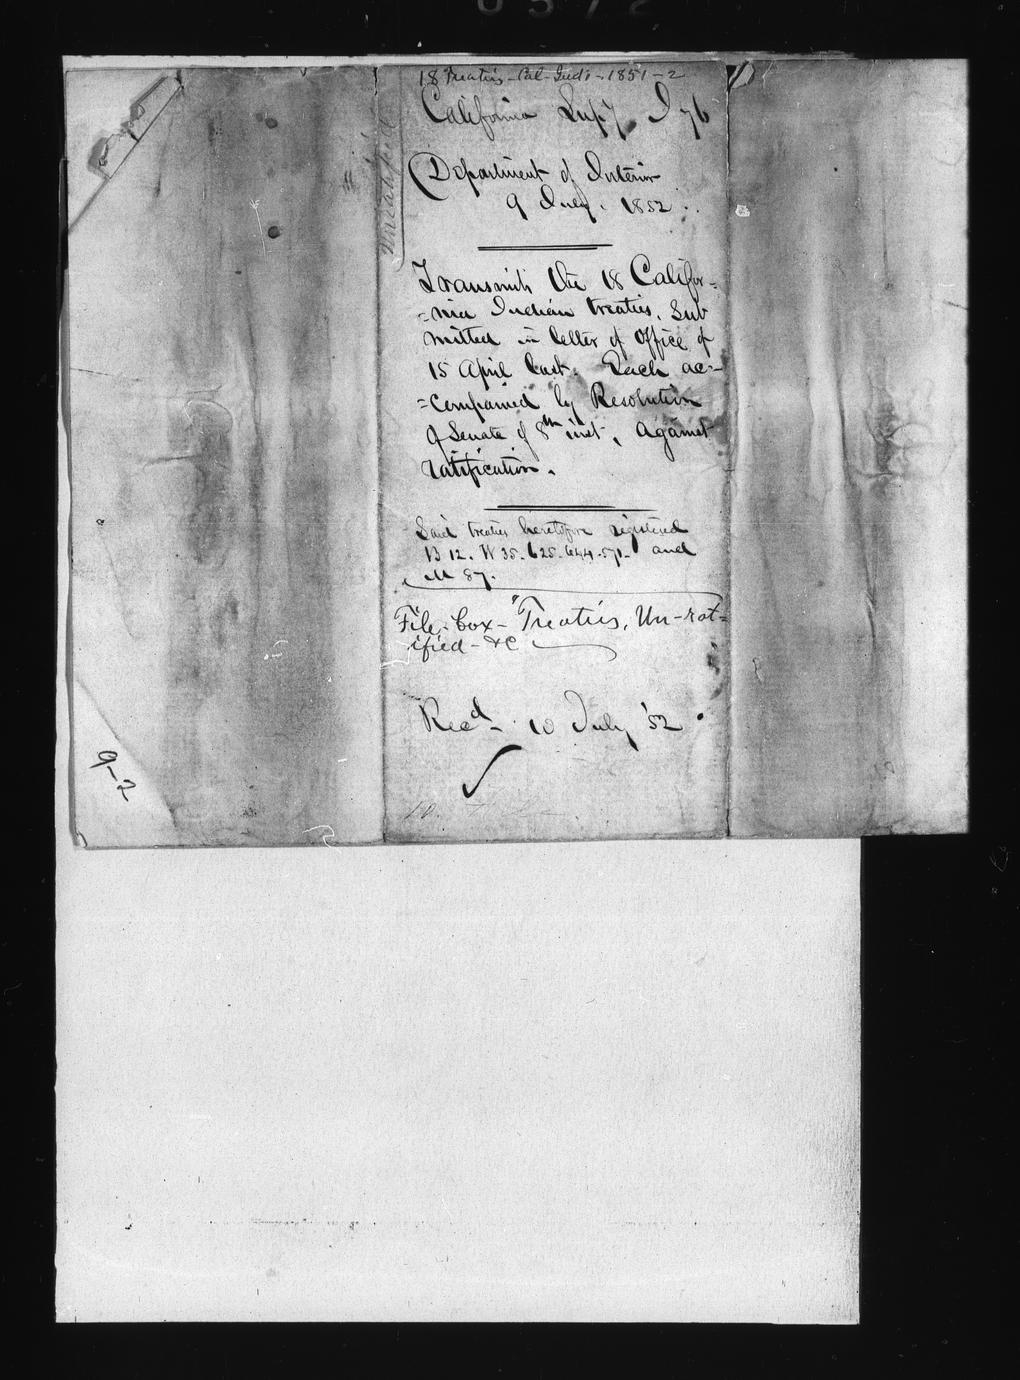 18 Treaties - Cal - Inds - 1851-2
California Sup'y I 76
Department of Interior
9 July. 1852.
Transmits the 18 Califor=
=nia Indian treaties, Sub
mitted in letter of Office of
15 April last. Each ac=
=companied by Resolution
of Senate of 8th inst, against
ratification.
Said treaties heretofore registered
B 12. W 35. 625. 644. 571. and
M 87.
File-box - "Treaties, Un-rat=
ified - &c
Recd 10 July '52
unratified
9-2